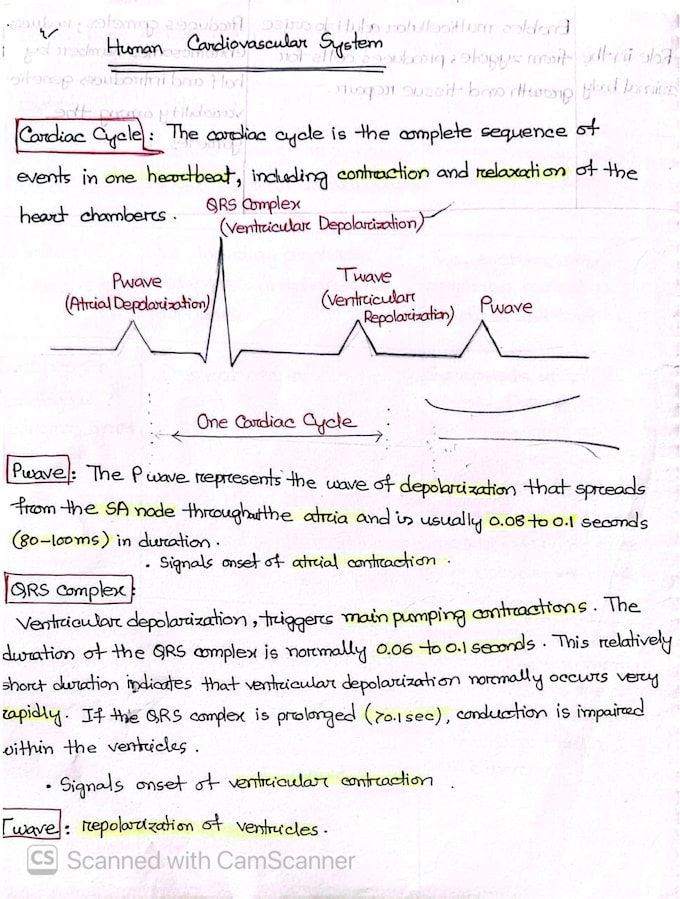 Human Cardiovascular System
Cardiac Cycle: The cardiac cycle is the complete sequence of
events in one heartbeat, including contraction and relaxation of the
heart chambers.
QRS Complex
(Ventricular Depolarization)
Pwave
(Atrial Depolarization)
Twave
(Ventricular
Repolarization)
Pwave
One Cardiac Cycle
Pwave: The P wave represents the wave of depolarization that spreads
from the SA node throughout the atria and is usually 0.08 to 0.1 seconds
(80-100ms) in duration.
• Signals onset of atrial contraction.
QRS Complex:
Ventricular depolarization, triggers main pumping contractions. The
duration of the QRS complex is normally 0.06 to 0.1 seconds. This relatively
short duration indicates that ventricular depolarization normally occurs very
rapidly. If the QRS complex is prolonged (>0.1 sec), conduction is impaired
within the ventricles.
• Signals onset of ventricular contraction.
Twave: repolarization of ventricles.
CS Scanned with CamScanner